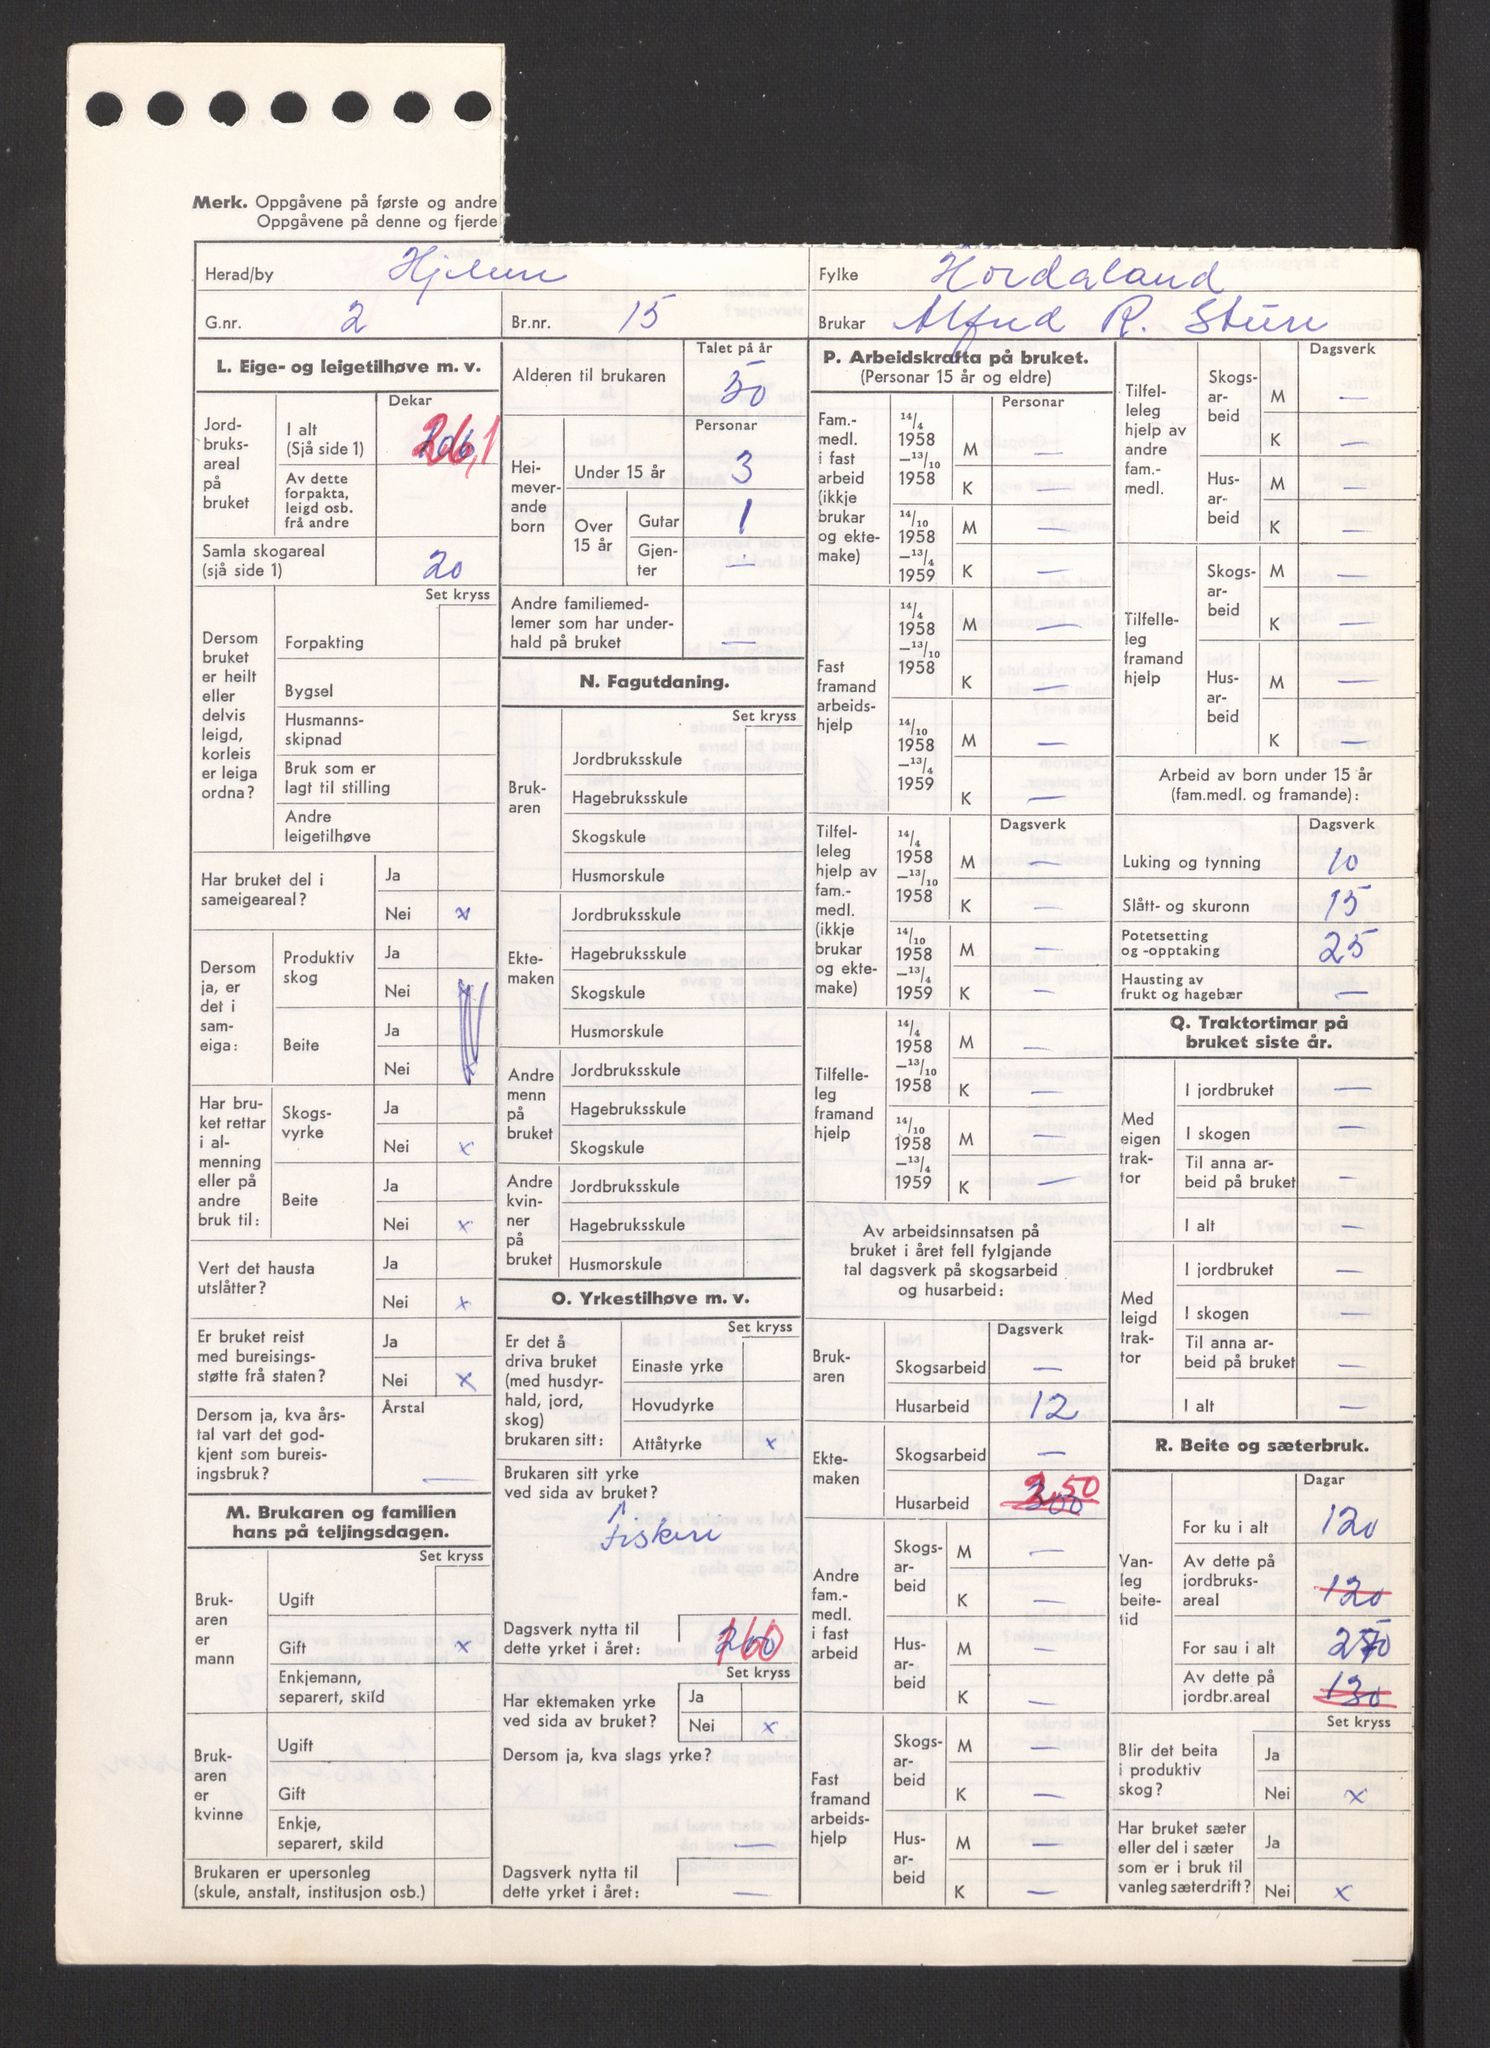 Merk. Oppgåvene på første og andre
Oppgåvene på denne og fjerde
Herad/by Hjelme
Fylke Hordaland
G.nr. 2
Br.nr. 15
Brukar Alfred R. Sture
L. Eige- og leigetilhøve m. v.
Dekar
Jord-
bruks-
areal
på
bruket
I alt
(Sjå side 1) 26,1
Av dette
forpakta,
leigd osb.
frå andre
Samla skogareal
(sjå side 1) 20
Set kryss
Dersom
bruket
er heilt
eller
delvis
leigd,
korleis
er leiga
ordna?
Forpakting
Bygsel
Husmanns-
skipnad
Bruk som er
lagt til stilling
Andre
leigetilhøve
Har bruket del i
sameigeareal?
Ja
Nei x
Dersom
ja, er
det i
sam-
eiga:
Produktiv
skog
Ja
Nei x
Beite
Ja
Nei x
Har bru-
ket rettar
i al-
menning
eller på
andre
bruk til:
Skogs-
vyrke
Ja
Nei x
Beite
Ja
Nei x
Vert det hausta
utslåtter?
Ja
Nei x
Er bruket reist
med bureisings-
støtte frå staten?
Ja
Nei x
Dersom ja, kva års-
tal vart det god-
kjent som bureis-
ingsbruk?
Årstal
—
M. Brukaren og familien
hans på teljingsdagen.
Set kryss
Bruk-
aren
er
mann
Ugift
Gift x
Enkjemann,
separert, skild
Bruk-
aren
er
kvinne
Ugift
Gift
Enkje,
separert, skild
Brukaren er upersonleg
(skule, anstalt, institusjon osb.)
Talet på år
Alderen til brukaren 50
Personar
Hei-
mever-
ande
born
Under 15 år 3
Over
15 år
Gutar 1
Gjen-
ter —
Andre familiemed-
lemer som har under-
hald på bruket —
N. Fagutdaning.
Set kryss
Bruk-
aren
Jordbruksskule
Hagebruksskule
Skogskule
Husmorskule
Ekte-
maken
Jordbruksskule
Hagebruksskule
Skogskule
Husmorskule
Andre
menn
på
bruket
Jordbruksskule
Hagebruksskule
Skogskule
Andre
kvin-
ner
på
bruket
Jordbruksskule
Hagebruksskule
Husmorskule
O. Yrkestilhøve m. v.
Set kryss
Er det å
driva bruket
(med husdyr-
hald, jord,
skog)
brukaren sitt:
Einaste yrke
Hovudyrke
Attåtyrke x
Brukaren sitt yrke
ved sida av bruket?
Fiskeri
Dagsverk nytta til
dette yrket i året: 160
Set kryss
Har ektemaken yrke
ved sida av bruket?
Ja
Nei x
Dersom ja, kva slags yrke?
—
Dagsverk nytta til
dette yrket i året: —
P. Arbeidskrafta på bruket.
(Personar 15 år og eldre)
Personar
Fam.-
medl.
i fast
arbeid
(ikkje
brukar
og ekte-
make)
14/4
1958
—13/10
1958
M —
K —
14/10
1958
—13/4
1959
M —
K —
Fast
framand
arbeids-
hjelp
14/4
1958
—13/10
1958
M —
K —
14/10
1958
—13/4
1959
M —
K —
Dagsverk
Tilfel-
leleg
hjelp av
fam.-
medl.
(ikkje
brukar
og ekte-
make)
14/4
1958
—13/10
1958
M —
K —
14/10
1958
—13/4
1959
M —
K —
Tilfelle-
leg
framand
hjelp
14/4
1958
—13/10
1958
M —
K —
14/10
1958
—13/4
1959
M —
K —
Av arbeidsinnsatsen på
bruket i året fell fylgjande
tal dagsverk på skogsarbeid
og husarbeid:
Dagsverk
Bruk-
aren
Skogsarbeid —
Husarbeid 12
Ekte-
maken
Skogsarbeid —
Husarbeid 300
Andre
fam.-
medl.
i fast
arbeid
Skogs-
ar-
beid
M —
K —
Hus-
ar-
beid
M —
K —
Fast
framand
arbeids-
hjelp
Skogs-
ar-
beid
M —
K —
Hus-
ar-
beid
M —
K —
Dagsverk
Tilfel-
leleg
hjelp av
andre
fam.-
medl.
Skogs-
ar-
beid
M —
K —
Hus-
ar-
beid
M —
K —
Tilfelle-
leg
framand
hjelp
Skogs-
ar-
beid
M —
K —
Hus-
ar-
beid
M —
K —
Arbeid av born under 15 år
(fam.medl. og framande):
Dagsverk
Luking og tynning 10
Slått- og skuronn 15
Potetsetting
og -opptaking 25
Hausting av
frukt og hagebær —
Q. Traktortimar på
bruket siste år.
Med
eigen
trak-
tor
I jordbruket —
I skogen —
Til anna ar-
beid på bruket —
I alt —
Med
leigd
trak-
tor
I jordbruket —
I skogen —
Til anna ar-
beid på bruket —
I alt —
R. Beite og sæterbruk.
Dagar
Van-
leg
beite-
tid
For ku i alt 120
Av dette på
jordbruks-
areal 120
For sau i alt
Av dette på
jordbr.areal 130
Set kryss
Blir det beita
i produktiv
skog?
Ja
Nei x
Har bruket sæter
eller del i sæter
som er i bruk til
vanleg sæterdrift?
Ja
Nei x